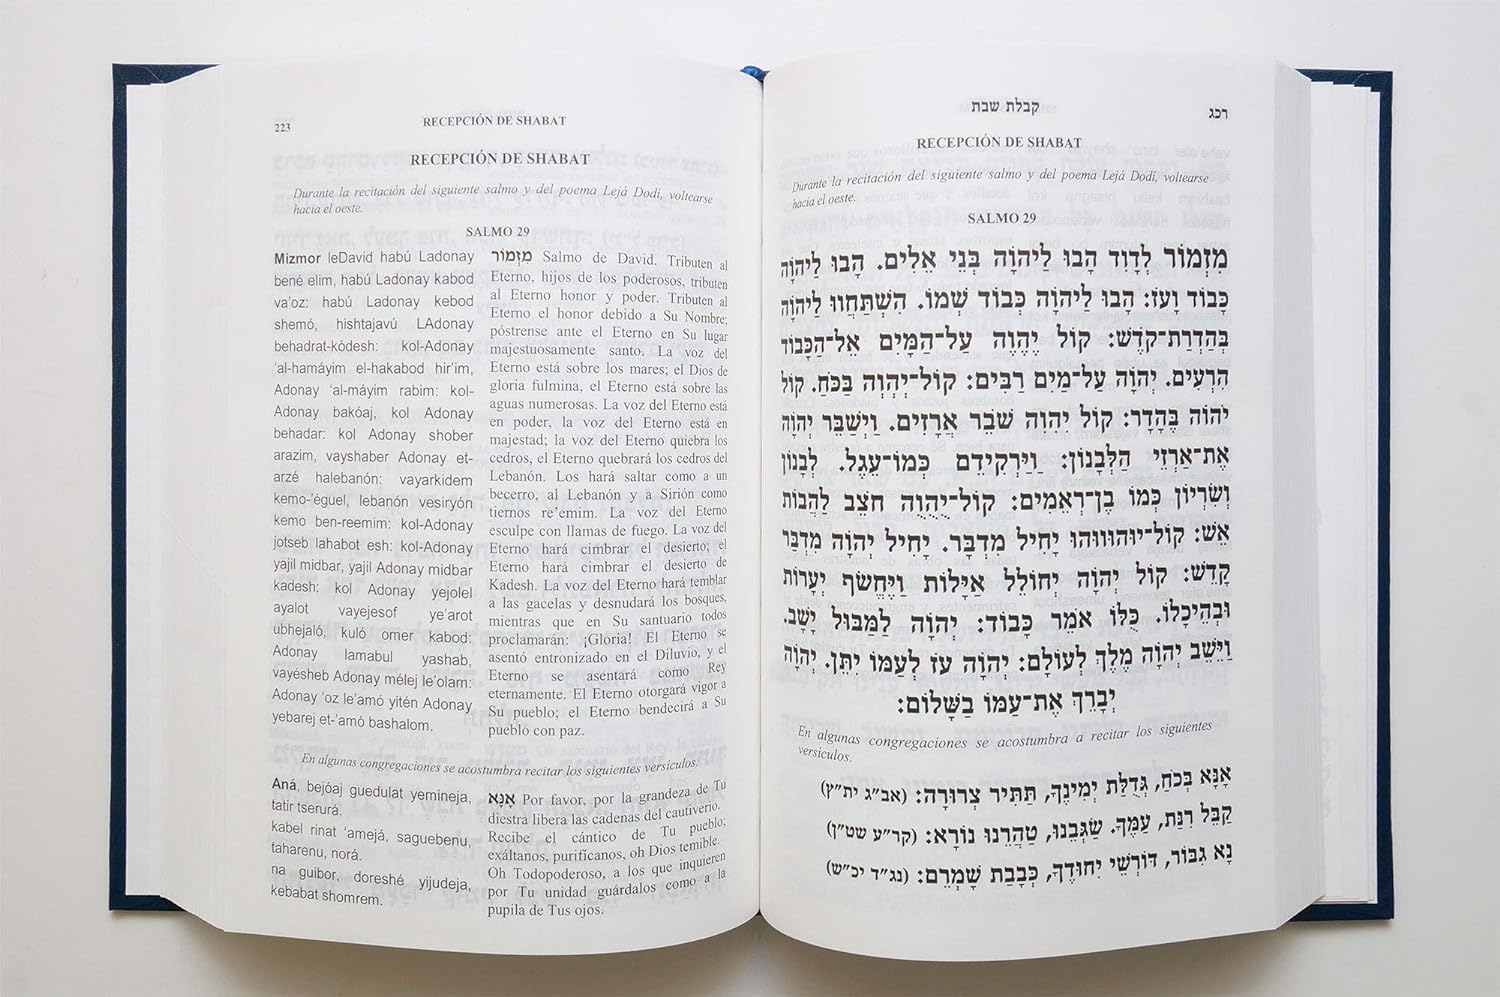 223
RECEPCIÓN DE SHABAT
RECEPCIÓN DE SHABAT
Durante la recitación del siguiente salmo y del poema Lejá Dodí, voltearse
hacia el oeste.
SALMO 29
Mizmor leDavid habú Ladonay
bené elim, habú Ladonay kabod
va'oz: habú Ladonay kebod
shemó, hishtajavú LAdonay
behadrat-kódesh: kol-Adonay
'al-hamáyim el-hakabod hir'im,
Adonay 'al-máyim rabim: kol-
Adonay bakóaj, kol Adonay
behadar: kol Adonay shober
arazim, vayshaber Adonay et-
arzé halebanón: vayarkidem
kemo-'éguel, lebanón vesiryón
kemo ben-reemim: kol-Adonay
jotseb lahabot esh: kol-Adonay
yajil midbar, yajil Adonay midbar
kadesh: kol Adonay yejolel
ayalot vayejesof ye'arot
ubhejaló, kuló omer kabod:
Adonay lamabul yashab,
vayésheb Adonay mélej le'olam:
Adonay 'oz le'amó yitén Adonay
yebarej et-'amó bashalom.
מִזְמוֹר Salmo de David. Tributen al
Eterno, hijos de los poderosos, tributen
al Eterno honor y poder. Tributen al
Eterno el honor debido a Su Nombre;
póstrense ante el Eterno en Su lugar
majestuosamente santo. La voz del
Eterno está sobre los mares; el Dios de
gloria fulmina, el Eterno está sobre las
aguas numerosas. La voz del Eterno está
en poder, la voz del Eterno está en
majestad; la voz del Eterno quiebra los
cedros, el Eterno quebrará los cedros del
Lebanón. Los hará saltar como a un
becerro, al Lebanón y a Sirión como
tiernos re'emim. La voz del Eterno
esculpe con llamas de fuego. La voz del
Eterno hará cimbrar el desierto; el
Eterno hará cimbrar el desierto de
Kadesh. La voz del Eterno hará temblar
a las gacelas y desnudará los bosques,
mientras que en Su santuario todos
proclamarán: ¡Gloria! El Eterno se
asentó entronizado en el Diluvio, y el
Eterno se asentará como Rey
eternamente. El Eterno otorgará vigor a
Su pueblo; el Eterno bendecirá a Su
pueblo con paz.
En algunas congregaciones se acostumbra recitar los siguientes versículos.
Aná, bejóaj guedulat yemineja,
tatir tserurá.
kabel rinat 'amejá, saguebenu,
taharenu, norá.
na guibor, doreshé yijudeja,
kebabat shomrem.
אָנָּא Por favor, por la grandeza de Tu
diestra libera las cadenas del cautiverio.
Recibe el cántico de Tu pueblo;
exáltanos, purifícanos, oh Dios temible.
Oh Todopoderoso, a los que inquieren
por Tu unidad guárdalos como a la
pupila de Tus ojos.
קבלת שבת
רכג
RECEPCIÓN DE SHABAT
Durante la recitación del siguiente salmo y del poema Lejá Dodí, voltearse
hacia el oeste.
SALMO 29
מִזְמוֹר לְדָוִד הָבוּ לַיהֹוָה בְּנֵי אֵלִים. הָבוּ לַיהֹוָה
כָּבוֹד וָעֹז: הָבוּ לַיהֹוָה כְּבוֹד שְׁמוֹ. הִשְׁתַּחֲווּ לַיהֹוָה
בְּהַדְרַת־קֹדֶשׁ: קוֹל יֶהֶוֶה עַל־הַמָּיִם אֵל־הַכָּבוֹד
הִרְעִים. יְהֹוָה עַל־מַיִם רַבִּים: קוֹל־יְהְוְה בַּכֹּחַ. קוֹל
יֹהֹוֹה בֶּהָדָר: קוֹל יִהִוִה שֹׁבֵר אֲרָזִים. וַיְשַׁבֵּר יְהֹוָה
אֶת־אַרְזֵי הַלְּבָנוֹן: וַיַּרְקִידֵם כְּמוֹ־עֵגֶל. לְבָנוֹן
וְשִׂרְיוֹן כְּמוֹ בֶן־רְאֵמִים: קוֹל־יֻהֻוֻה חֹצֵב לַהֲבוֹת
אֵשׁ: קוֹל־יוּהוּווּהוּ יָחִיל מִדְבָּר. יָחִיל יְהֹוָה מִדְבַּר
קָדֵשׁ: קוֹל יְהֹוָה יְחוֹלֵל אַיָּלוֹת וַיֶּחֱשֹׂף יְעָרוֹת
וּבְהֵיכָלוֹ. כֻּלּוֹ אֹמֵר כָּבוֹד: יְהֹוָה לַמַּבּוּל יָשָׁב.
וַיֵּשֶׁב יְהֹוָה מֶלֶךְ לְעוֹלָם: יְהֹוָה עֹז לְעַמּוֹ יִתֵּן. יְהֹוָה
יְבָרֵךְ אֶת־עַמּוֹ בַשָּׁלוֹם:
En algunas congregaciones se acostumbra a recitar los siguientes
versículos.
אָנָּא בְּכֹחַ, גְּדֻלַּת יְמִינֶךָ, תַּתִּיר צְרוּרָה: (אב"ג ית"ץ)
קַבֵּל רִנַּת, עַמֶּךָ. שַׂגְּבֵנוּ, טַהֲרֵנוּ נוֹרָא: (קר"ע שט"ן)
נָא גִבּוֹר, דּוֹרְשֵׁי יִחוּדֶךָ, כְּבָבַת שָׁמְרֵם: (נג"ד יכ"ש)